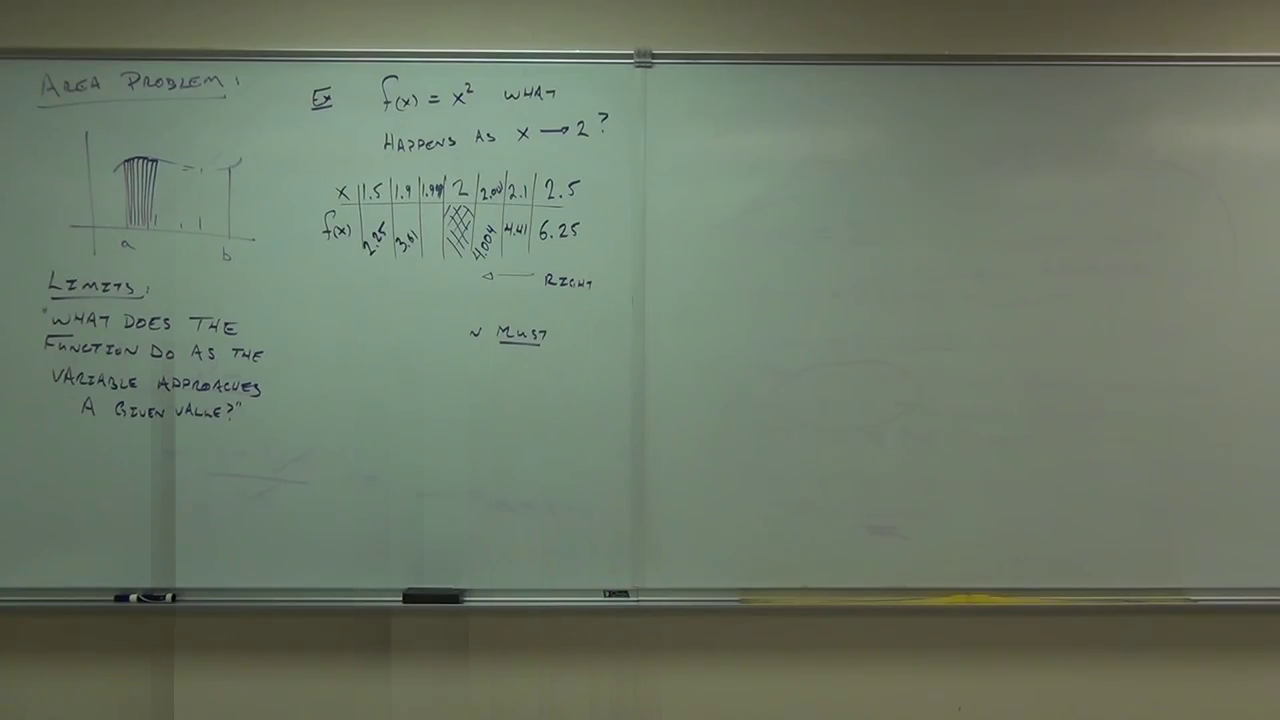 AREA PROBLEM:
a
b
LIMITS:
"WHAT DOES THE
FUNCTION DO AS THE
VARIABLE APPROACHES
A GIVEN VALUE?"
Ex f(x) = x² WHAT
HAPPENS AS X → 2?
X 1.5 1.9 1.999 2 2.001 2.1 2.5
f(x) 2.25 3.61 4.004 4.41 6.25
← RIGHT
~ MUST